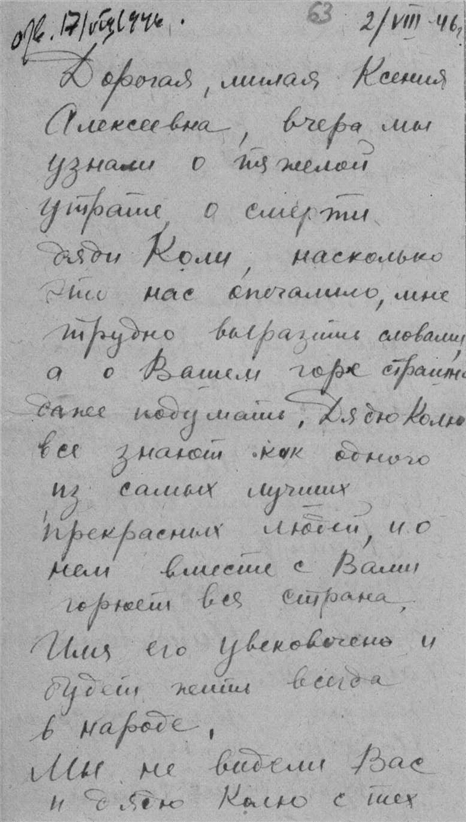 отв. 17/VIII 1946.
63
2/VIII 46г.
Дорогая, милая Ксения
Алексеевна, вчера мы
узнали о тяжелой
утрате, о смерти
дяди Коли, насколько
это нас опечалило, мне
трудно выразить словами,
а о Вашем горе страшно
даже подумать. Дядю Колю
все знают как одного
из самых лучших
прекрасных людей, и о
нем вместе с Вами
горюет вся страна.
Имя его увековечено и
будет жить всегда
в народе.
Мы не видели Вас
и дядю Колю с тех